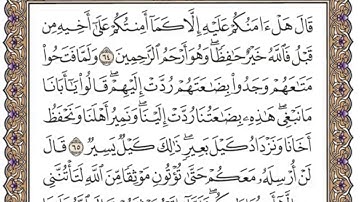 قَالَ هَلْ ءَامَنُكُمْ عَلَيْهِ إِلَّا كَمَآ أَمِنتُكُمْ عَلَىٰٓ أَخِيهِ مِن
قَبْلُ فَٱللَّهُ خَيْرٌ حَٰفِظًا ۖ وَهُوَ أَرْحَمُ ٱلرَّٰحِمِينَ ٦٤ وَلَمَّا فَتَحُوا۟
مَتَٰعَهُمْ وَجَدُوا۟ بِضَٰعَتَهُمْ رُدَّتْ إِلَيْهِمْ ۖ قَالُوا۟ يَٰٓأَبَانَا
مَا نَبْغِى ۖ هَٰذِهِۦ بِضَٰعَتُنَا رُدَّتْ إِلَيْنَا ۖ وَنَمِيرُ أَهْلَنَا وَنَحْفَظُ
أَخَانَا وَنَزْدَادُ كَيْلَ بَعِيرٍ ۖ ذَٰلِكَ كَيْلٌ يَسِيرٌ ٦٥ قَالَ
لَنْ أُرْسِلَهُۥ مَعَكُمْ حَتَّىٰ تُؤْتُونِ مَوْثِقًا مِّنَ ٱللَّهِ لَتَأْتُنَّنِى